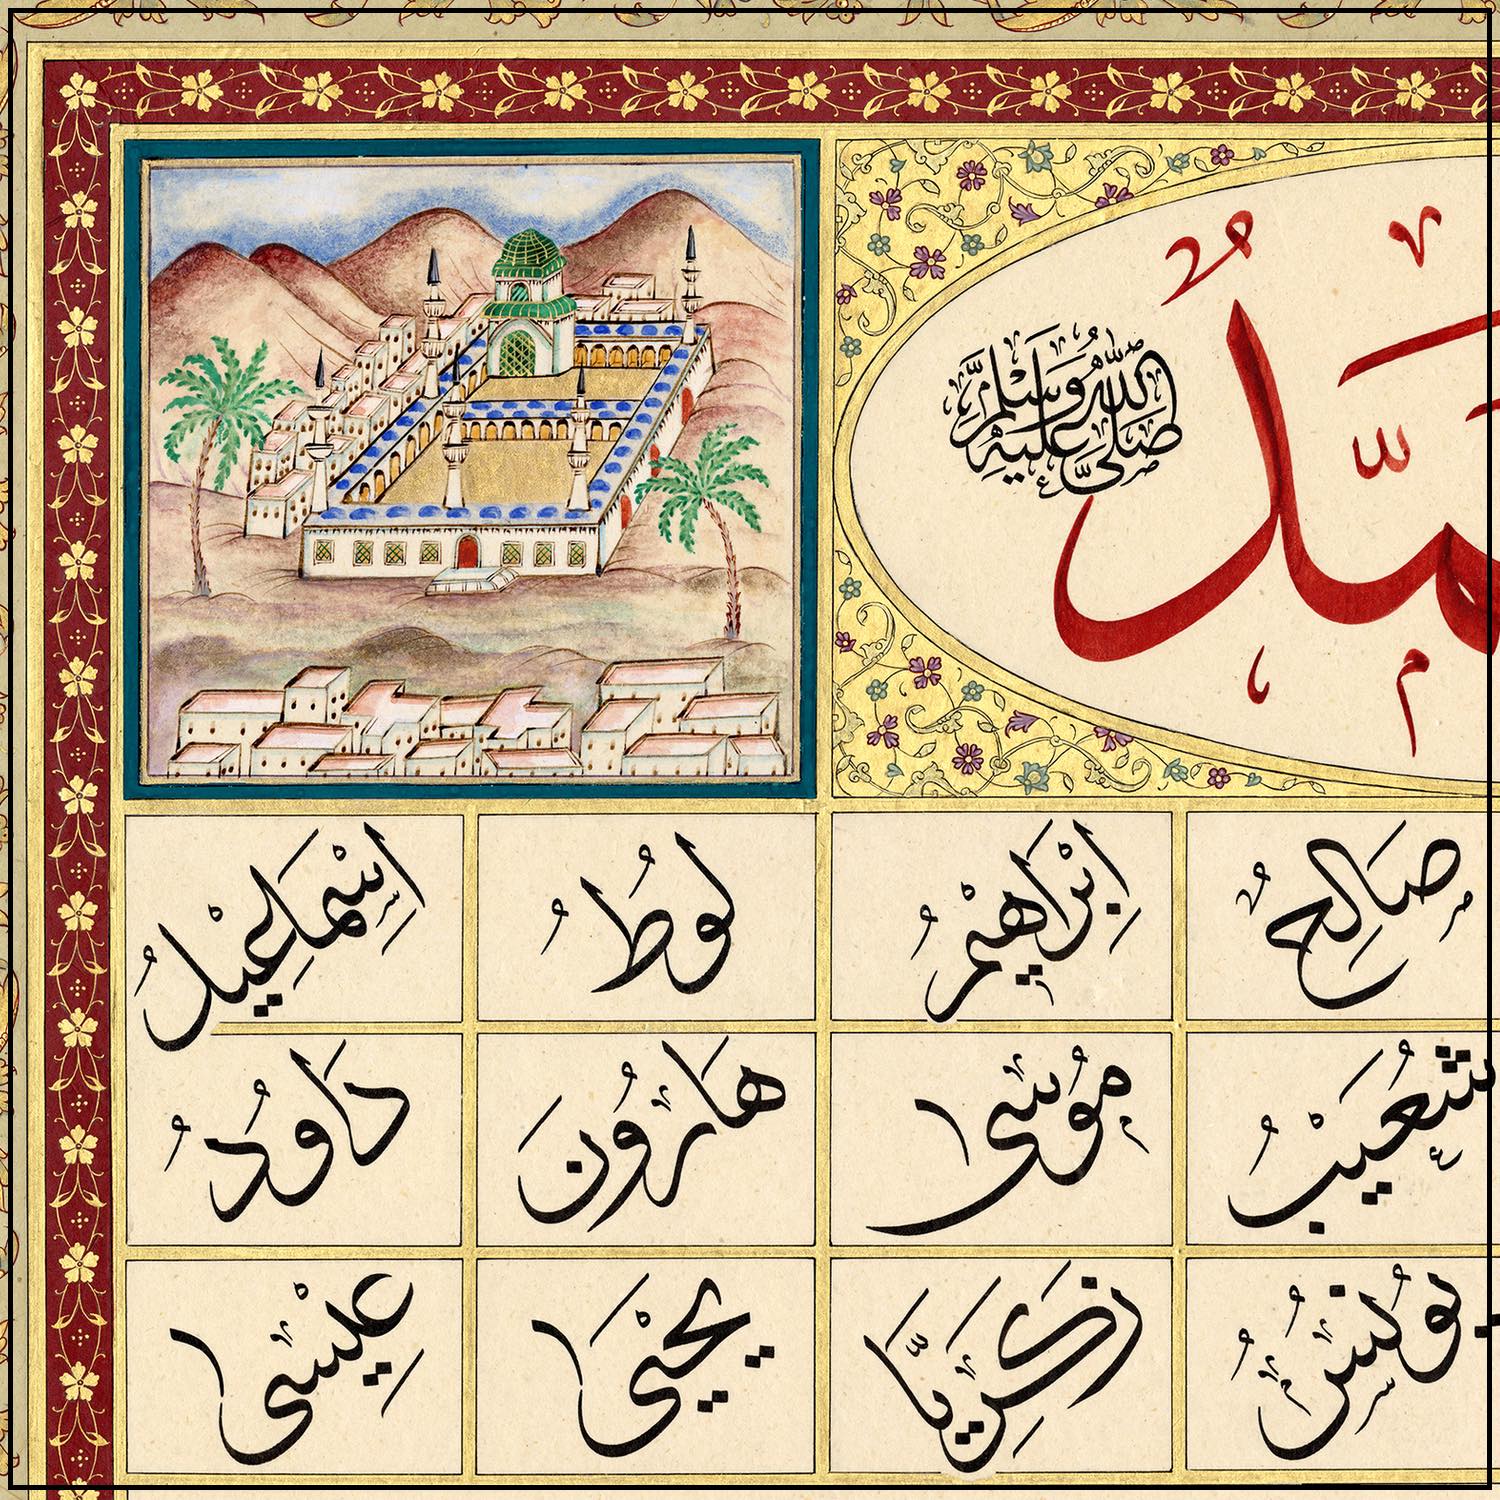 مُحَمَّدُ
صَلَّى اللّٰهُ عَلَيْهِ وَسَلَّمَ
صَالِحُ اِبْرَاهِيْمُ لُوطُ اِسْمَاعِيْلُ
شُعَيْبُ مُوسٰى هَارُونَ دَاوُدُ
يُونُسُ زَكَرِيَّا يَحْيٰى عِيْسٰى